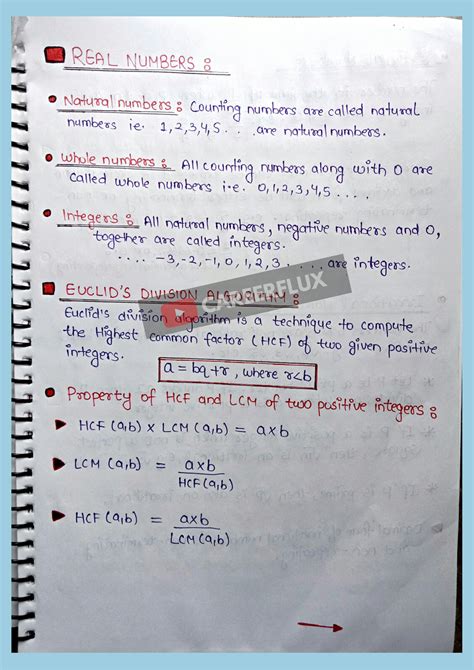 REAL NUMBERS :
• Natural numbers : Counting numbers are called natural
numbers ie. 1,2,3,4,5 . . . are natural numbers.
• Whole numbers : All counting numbers along with 0 are
called whole numbers i.e. 0,1,2,3,4,5 . . . .
• Integers : All natural numbers, negative numbers and 0,
together are called integers.
. . . . -3,-2,-1, 0, 1, 2, 3 . . . . are integers.
CAREERFLUX
EUCLID'S DIVISION ALGORITHM :
Euclid's division algorithm is a technique to compute
the Highest common factor (HCF) of two given positive
integers.
a = bq+r , where r<b
Property of HCF and LCM of two positive integers :
► HCF (a,b) x LCM (a,b) = axb
► LCM (a,b) = axb
HCF(a,b)
► HCF (a,b) = axb
LCM (a,b)